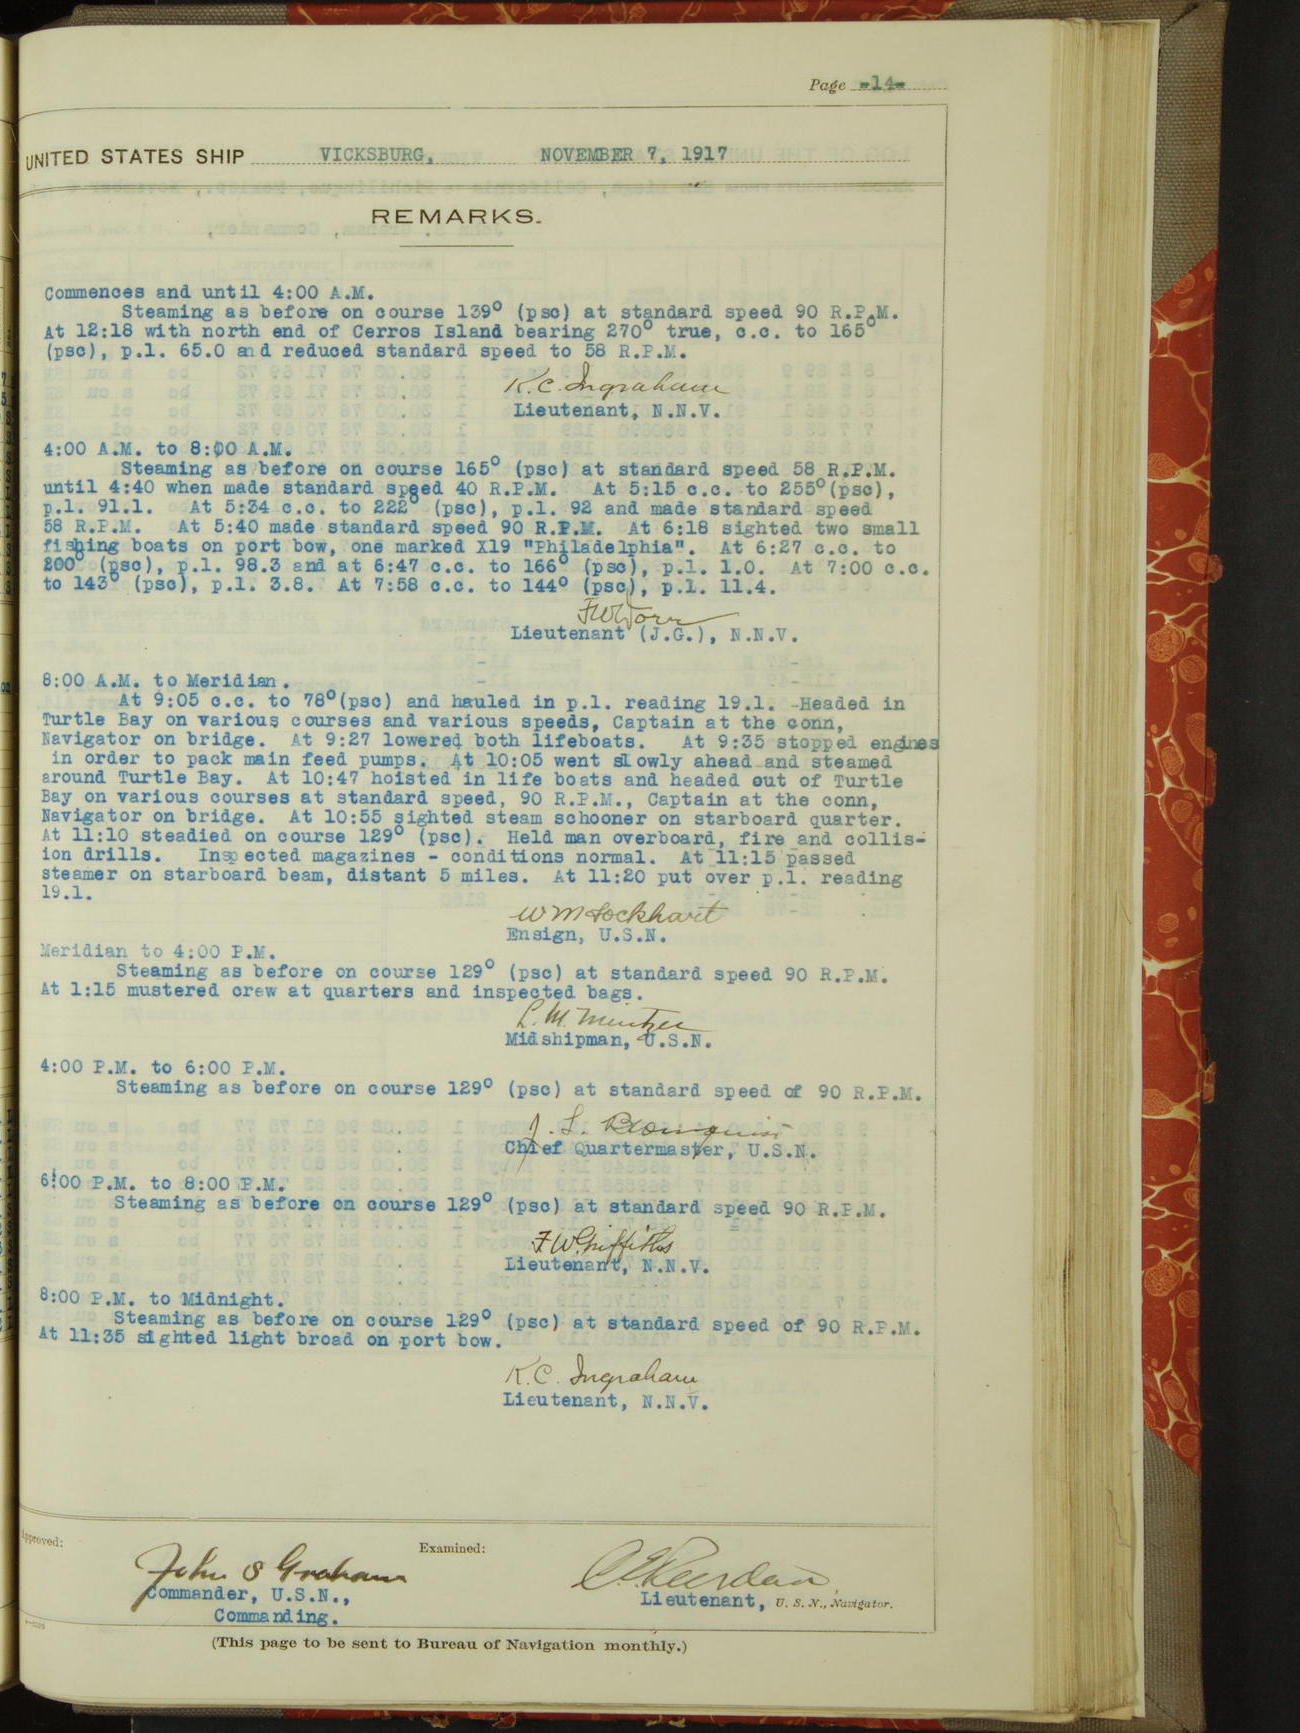 Page -14-
UNITED STATES SHIP VICKSBURG, NOVEMBER 7, 1917
REMARKS.
Commences and until 4:00 A.M.
Steaming as before on course 139° (psc) at standard speed 90 R.P.M.
At 12:18 with north end of Cerros Island bearing 270° true, c.c. to 165°
(psc), p.l. 65.0 and reduced standard speed to 58 R.P.M.
K.C. Ingraham
Lieutenant, N.N.V.
4:00 A.M. to 8:00 A.M.
Steaming as before on course 165° (psc) at standard speed 58 R.P.M.
until 4:40 when made standard speed 40 R.P.M. At 5:15 c.c. to 255°(psc),
p.l. 91.1. At 5:34 c.c. to 222° (psc), p.l. 92 and made standard speed
58 R.P.M. At 5:40 made standard speed 90 R.P.M. At 6:18 sighted two small
fishing boats on port bow, one marked X19 "Philadelphia". At 6:27 c.c. to
200° (psc), p.l. 98.3 and at 6:47 c.c. to 166° (psc), p.l. 1.0. At 7:00 c.c.
to 143° (psc), p.l. 3.8. At 7:58 c.c. to 144° (psc), p.l. 11.4.
Lieutenant (J.G.), N.N.V.
8:00 A.M. to Meridian.
At 9:05 c.c. to 78°(psc) and hauled in p.l. reading 19.1. -Headed in
Turtle Bay on various courses and various speeds, Captain at the conn,
Navigator on bridge. At 9:27 lowered both lifeboats. At 9:35 stopped engines
in order to pack main feed pumps. At 10:05 went slowly ahead and steamed
around Turtle Bay. At 10:47 hoisted in life boats and headed out of Turtle
Bay on various courses at standard speed, 90 R.P.M., Captain at the conn,
Navigator on bridge. At 10:55 sighted steam schooner on starboard quarter.
At 11:10 steadied on course 129° (psc). Held man overboard, fire and collis-
ion drills. Inspected magazines - conditions normal. At 11:15 passed
steamer on starboard beam, distant 5 miles. At 11:20 put over p.l. reading
19.1.
W M Lockhart
Ensign, U.S.N.
Meridian to 4:00 P.M.
Steaming as before on course 129° (psc) at standard speed 90 R.P.M.
At 1:15 mustered crew at quarters and inspected bags.
L. M. Mintzer
Midshipman, U.S.N.
4:00 P.M. to 6:00 P.M.
Steaming as before on course 129° (psc) at standard speed of 90 R.P.M.
Chief Quartermaster, U.S.N.
6:00 P.M. to 8:00 P.M.
Steaming as before on course 129° (psc) at standard speed 90 R.P.M.
F W Griffiths
Lieutenant, N.N.V.
8:00 P.M. to Midnight.
Steaming as before on course 129° (psc) at standard speed of 90 R.P.M.
At 11:35 sighted light broad on port bow.
K.C. Ingraham
Lieutenant, N.N.V.
Approved: Examined:
John S Graham
Commander, U.S.N., Lieutenant, U. S. N., Navigator.
Commanding.
(This page to be sent to Bureau of Navigation monthly.)